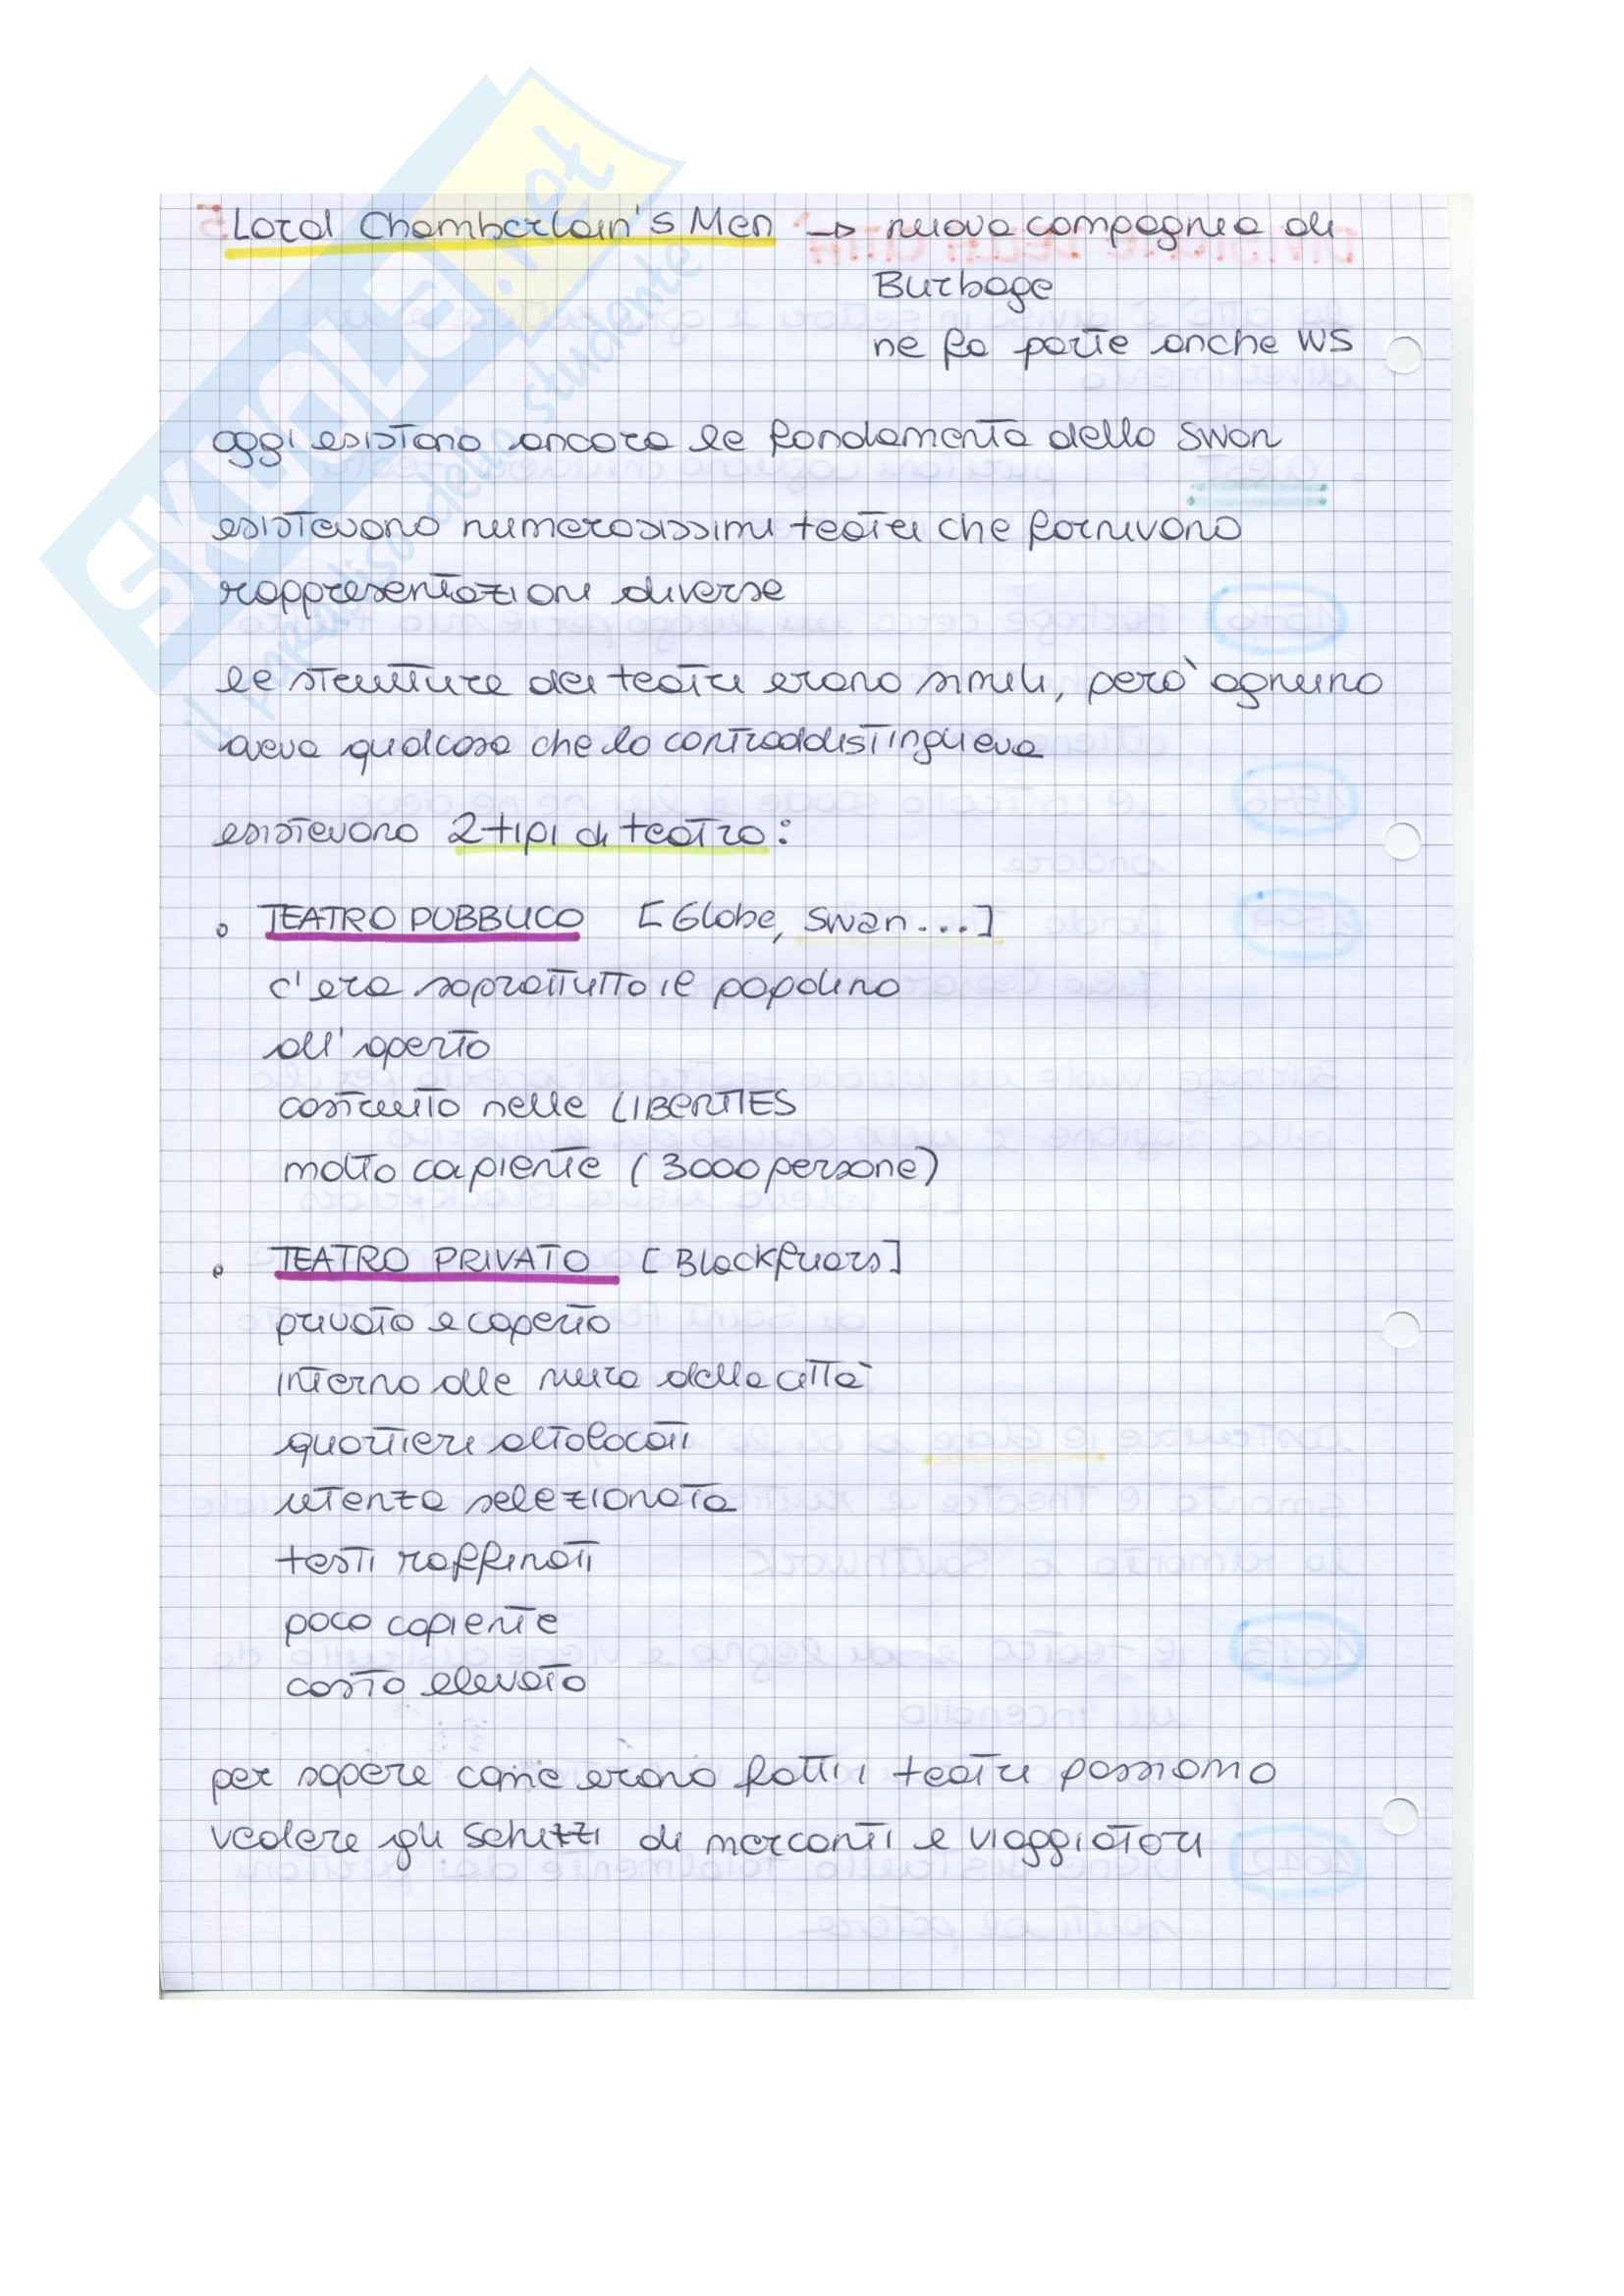 Lord Chamberlain's Men → nuova compagnia di
Burbage
ne fa parte anche WS
oggi esistono ancora le fondamenta dello Swan
esistevano numerosissimi teatri che fornivano
rappresentazioni diverse
le strutture dei teatri erano simili, però ognuno
aveva qualcosa che lo contraddistingueva
esistevano 2 tipi di teatro:
• TEATRO PUBBLICO [Globe, Swan...]
c'era soprattutto il popolino
all'aperto
costruito nelle LIBERTIES
molto capiente (3000 persone)
• TEATRO PRIVATO [Blackfriars]
privato e coperto
interno alle mura della città
quartieri altolocati
utenza selezionata
testi raffinati
poco capiente
costo elevato
per sapere come erano fatti i teatri possiamo
vedere gli schizzi di mercanti e viaggiatori
SKUOLA.net
il paradiso dello studente